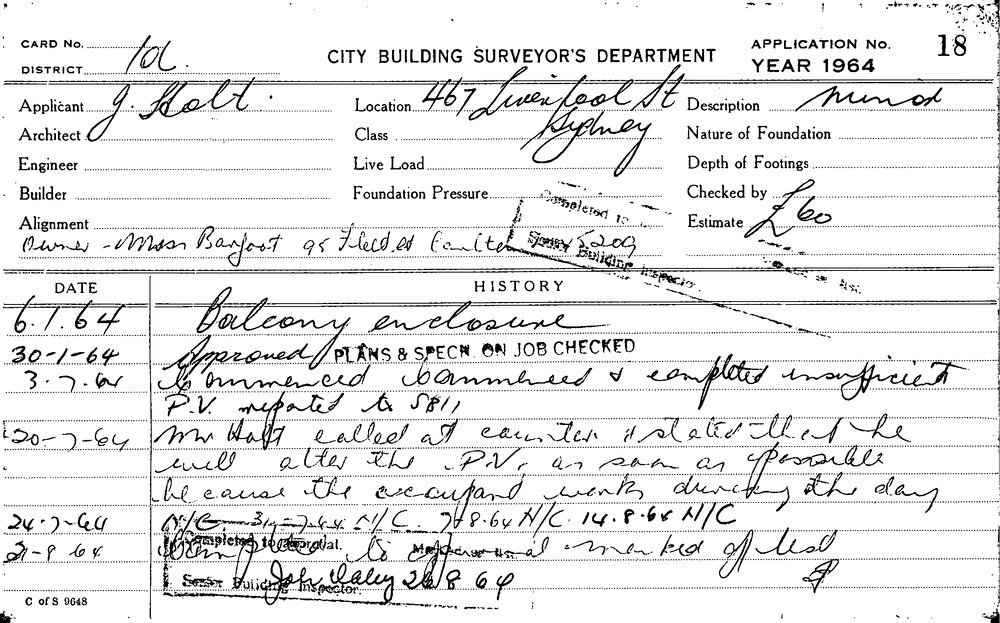 CARD No.
DISTRICT 1d.
CITY BUILDING SURVEYOR'S DEPARTMENT
APPLICATION No. 18
YEAR 1964
Applicant J. Holt.
Location 467 Liverpool St
Sydney
Description Minor
Architect
Class
Nature of Foundation
Engineer
Live Load
Depth of Footings
Builder
Foundation Pressure
Checked by
Alignment
Estimate £60
Owner - Miss Barfoot 95 5209
Completed to
Senior Building Inspector
DATE
HISTORY
6.1.64 Balcony enclosure
30-1-64 Approved PLANS & SPECN. ON JOB CHECKED
3.7.64 Commenced & completed insufficient
P.V. reported to 5811
20-7-64 Mr Holt called at counter & stated that he
will alter the P.V. as soon as possible
because the occupant works during the day
24-7-64 N/C 31-7-64 N/C. 7-8-64 N/C. 14.8.64 N/C
21-8 64 Completed to approval marked off list
Completed to approval.
Senior Building Inspector.
26 8 64
C of S 9648